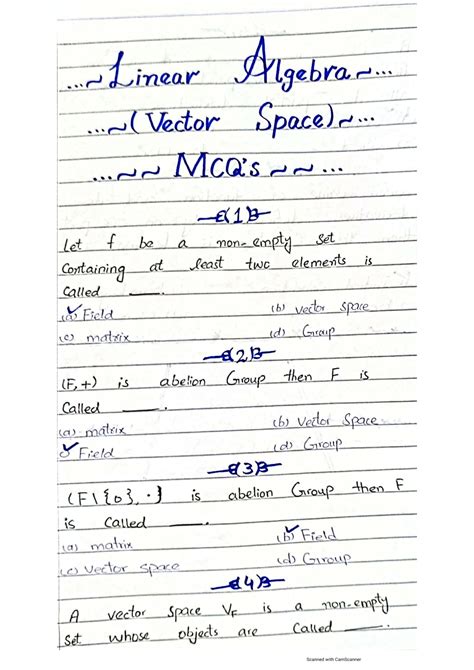 ...~Linear Algebra~...
...~(Vector Space)~...
...~~ MCQ's ~~...
(1)
Let f be a non-empty set
Containing at least two elements is
Called ____.
(a) Field (b) vector space
(c) matrix (d) Group
(2)
(F,+) is abelion Group then F is
Called ____.
(a) matrix (b) Vector Space
Field (d) Group
(3)
(F\{0}, ·} is abelion Group then F
is Called ____.
(a) matrix (b) Field
(c) Vector Space (d) Group
(4)
A vector space V_F is a non-empty
Set whose objects are Called ____.
Scanned with CamScanner